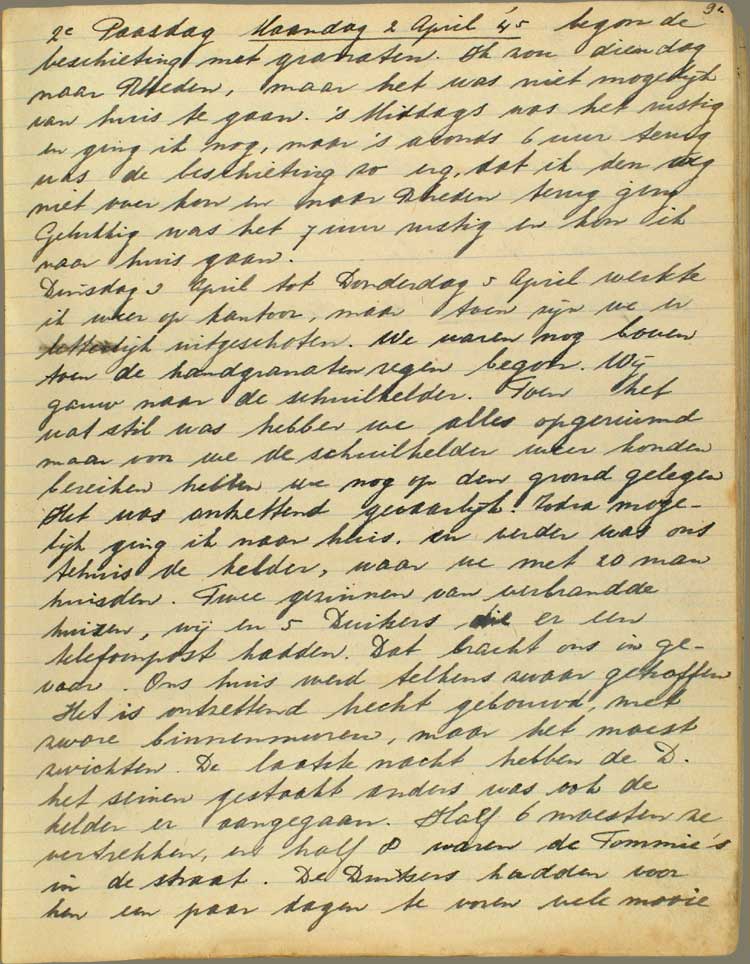 92
2e Paasdag Maandag 2 April '45 begon de
beschieting met granaten. Ik zou dien dag
naar Rheden, maar het was niet mogelijk
van huis te gaan. 's Middags was het rustig
en ging ik nog, maar 's avonds 6 uur terug
was de beschieting zo erg, dat ik den weg
niet over kon en naar Rheden terug ging
Gelukkig was het 7 uur rustig en kon ik
naar huis gaan.
Dinsdag 3 April tot Donderdag 5 April werkte
ik weer op kantoor, maar toen zijn we er
letterlijk uitgeschoten. We waren nog boven
toen de handgranatenregen begon. Wij
gauw naar de schuilkelder. Toen het
wat stil was hebben we alles opgeruimd
maar voor we de schuilkelder weer konden
bereiken hebben we nog op den grond gelegen
Het was ontzettend gevaarlijk. Zodra moge-
lijk ging ik naar huis. en verder was ons
tehuis de kelder, waar we met 20 man
huisden. Twee gezinnen van verbrandde
huizen, wij en 5 Duitsers die er een
telefoonpost hadden. Dat bracht ons in ge-
vaar. Ons huis werd telkens zwaar getroffen
Het is ontzettend hecht gebouwd, met
zware binnenmuren, maar het moest
zwichten. De laatste nacht hebben de D.
het seinen gestaakt anders was ook de
kelder er aangegaan. Half 6 moesten ze
vertrekken, en half 8 waren de Tommie's
in de straat. De Duitsers hadden voor
hen een paar dagen te voren vele mooie